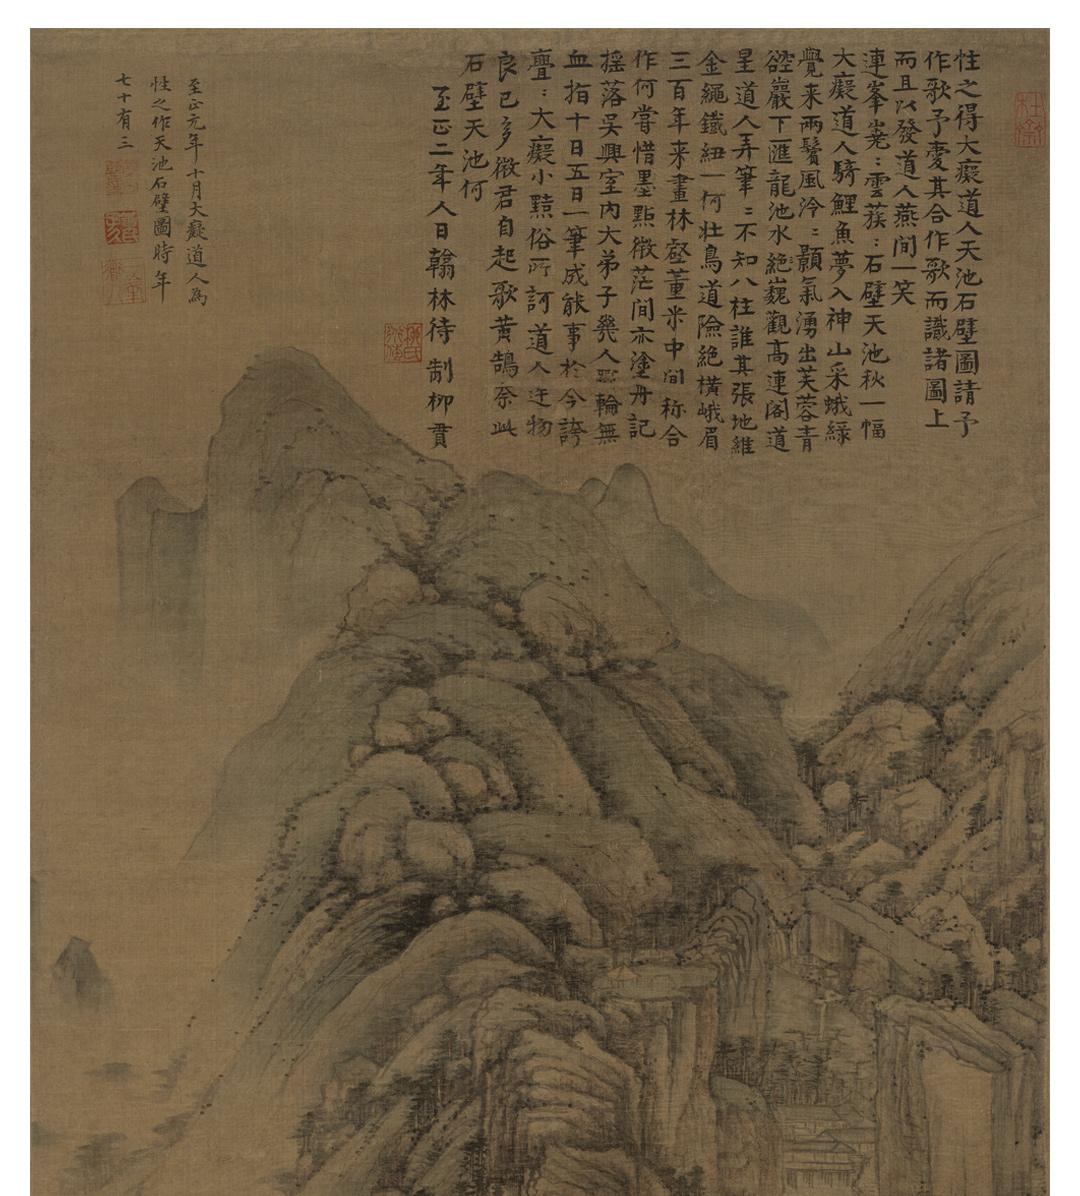 性之得大癡道人天池石壁圖請予
作歌予愛其合作歌而識諸圖上
而且以發道人燕間一笑
連峯嶤：雲蔟：石壁天池秋一幅
大癡道人騎鯉魚夢入神山采蛾綠
覺來兩鬢風泠：顥氣湧出芙蓉青
硿巖下匯龍池水絶巍觀高連閣道
星道人弄筆：不知八柱誰其張地維
金繩鐵紐一何壯鳥道險絕橫峨眉
三百年来畫林壑董米中间称合
作何嘗惜墨點微茫間亦塗丹記
揺落吳興室内大弟子幾人輪無
血指十日五日一筆成能事於今誇
亹：大癡小黠俗所訶道人迕物
良已多微君自起歌黄鵠奈此
石壁天池何
至正二年人日翰林待制柳貫
至正元年十月大癡道人為
性之作天池石壁圖時年
七十有三